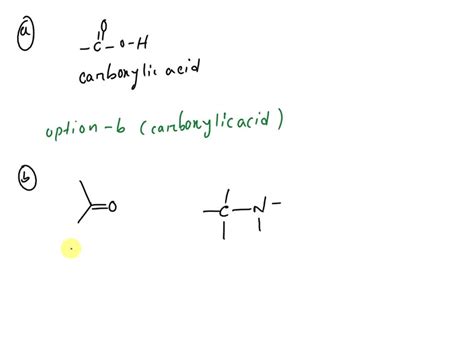 a
O
- C - O - H
carboxylic acid
option - b (carboxylic acid)
b
O
C N